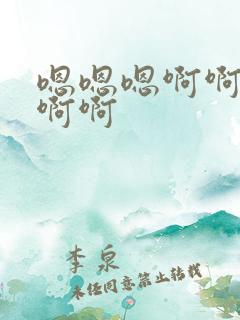 嗯嗯嗯啊啊
啊啊
李泉
未经同意禁止转载